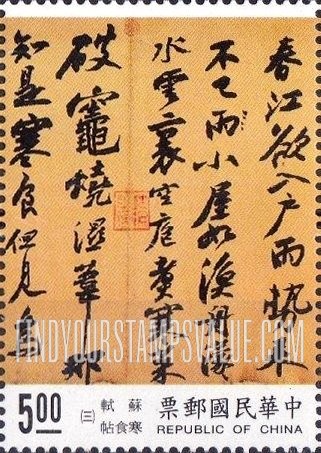 春江欲入戶雨勢來
不已雨小屋如漁舟濛
水雲裏空庖煮寒菜
破竈燒濕葦那
知是寒食但見烏
FINDYOURSTAMPSVALUE.COM
中華民國郵票
REPUBLIC OF CHINA
蘇軾
寒食帖
(三)
5.00